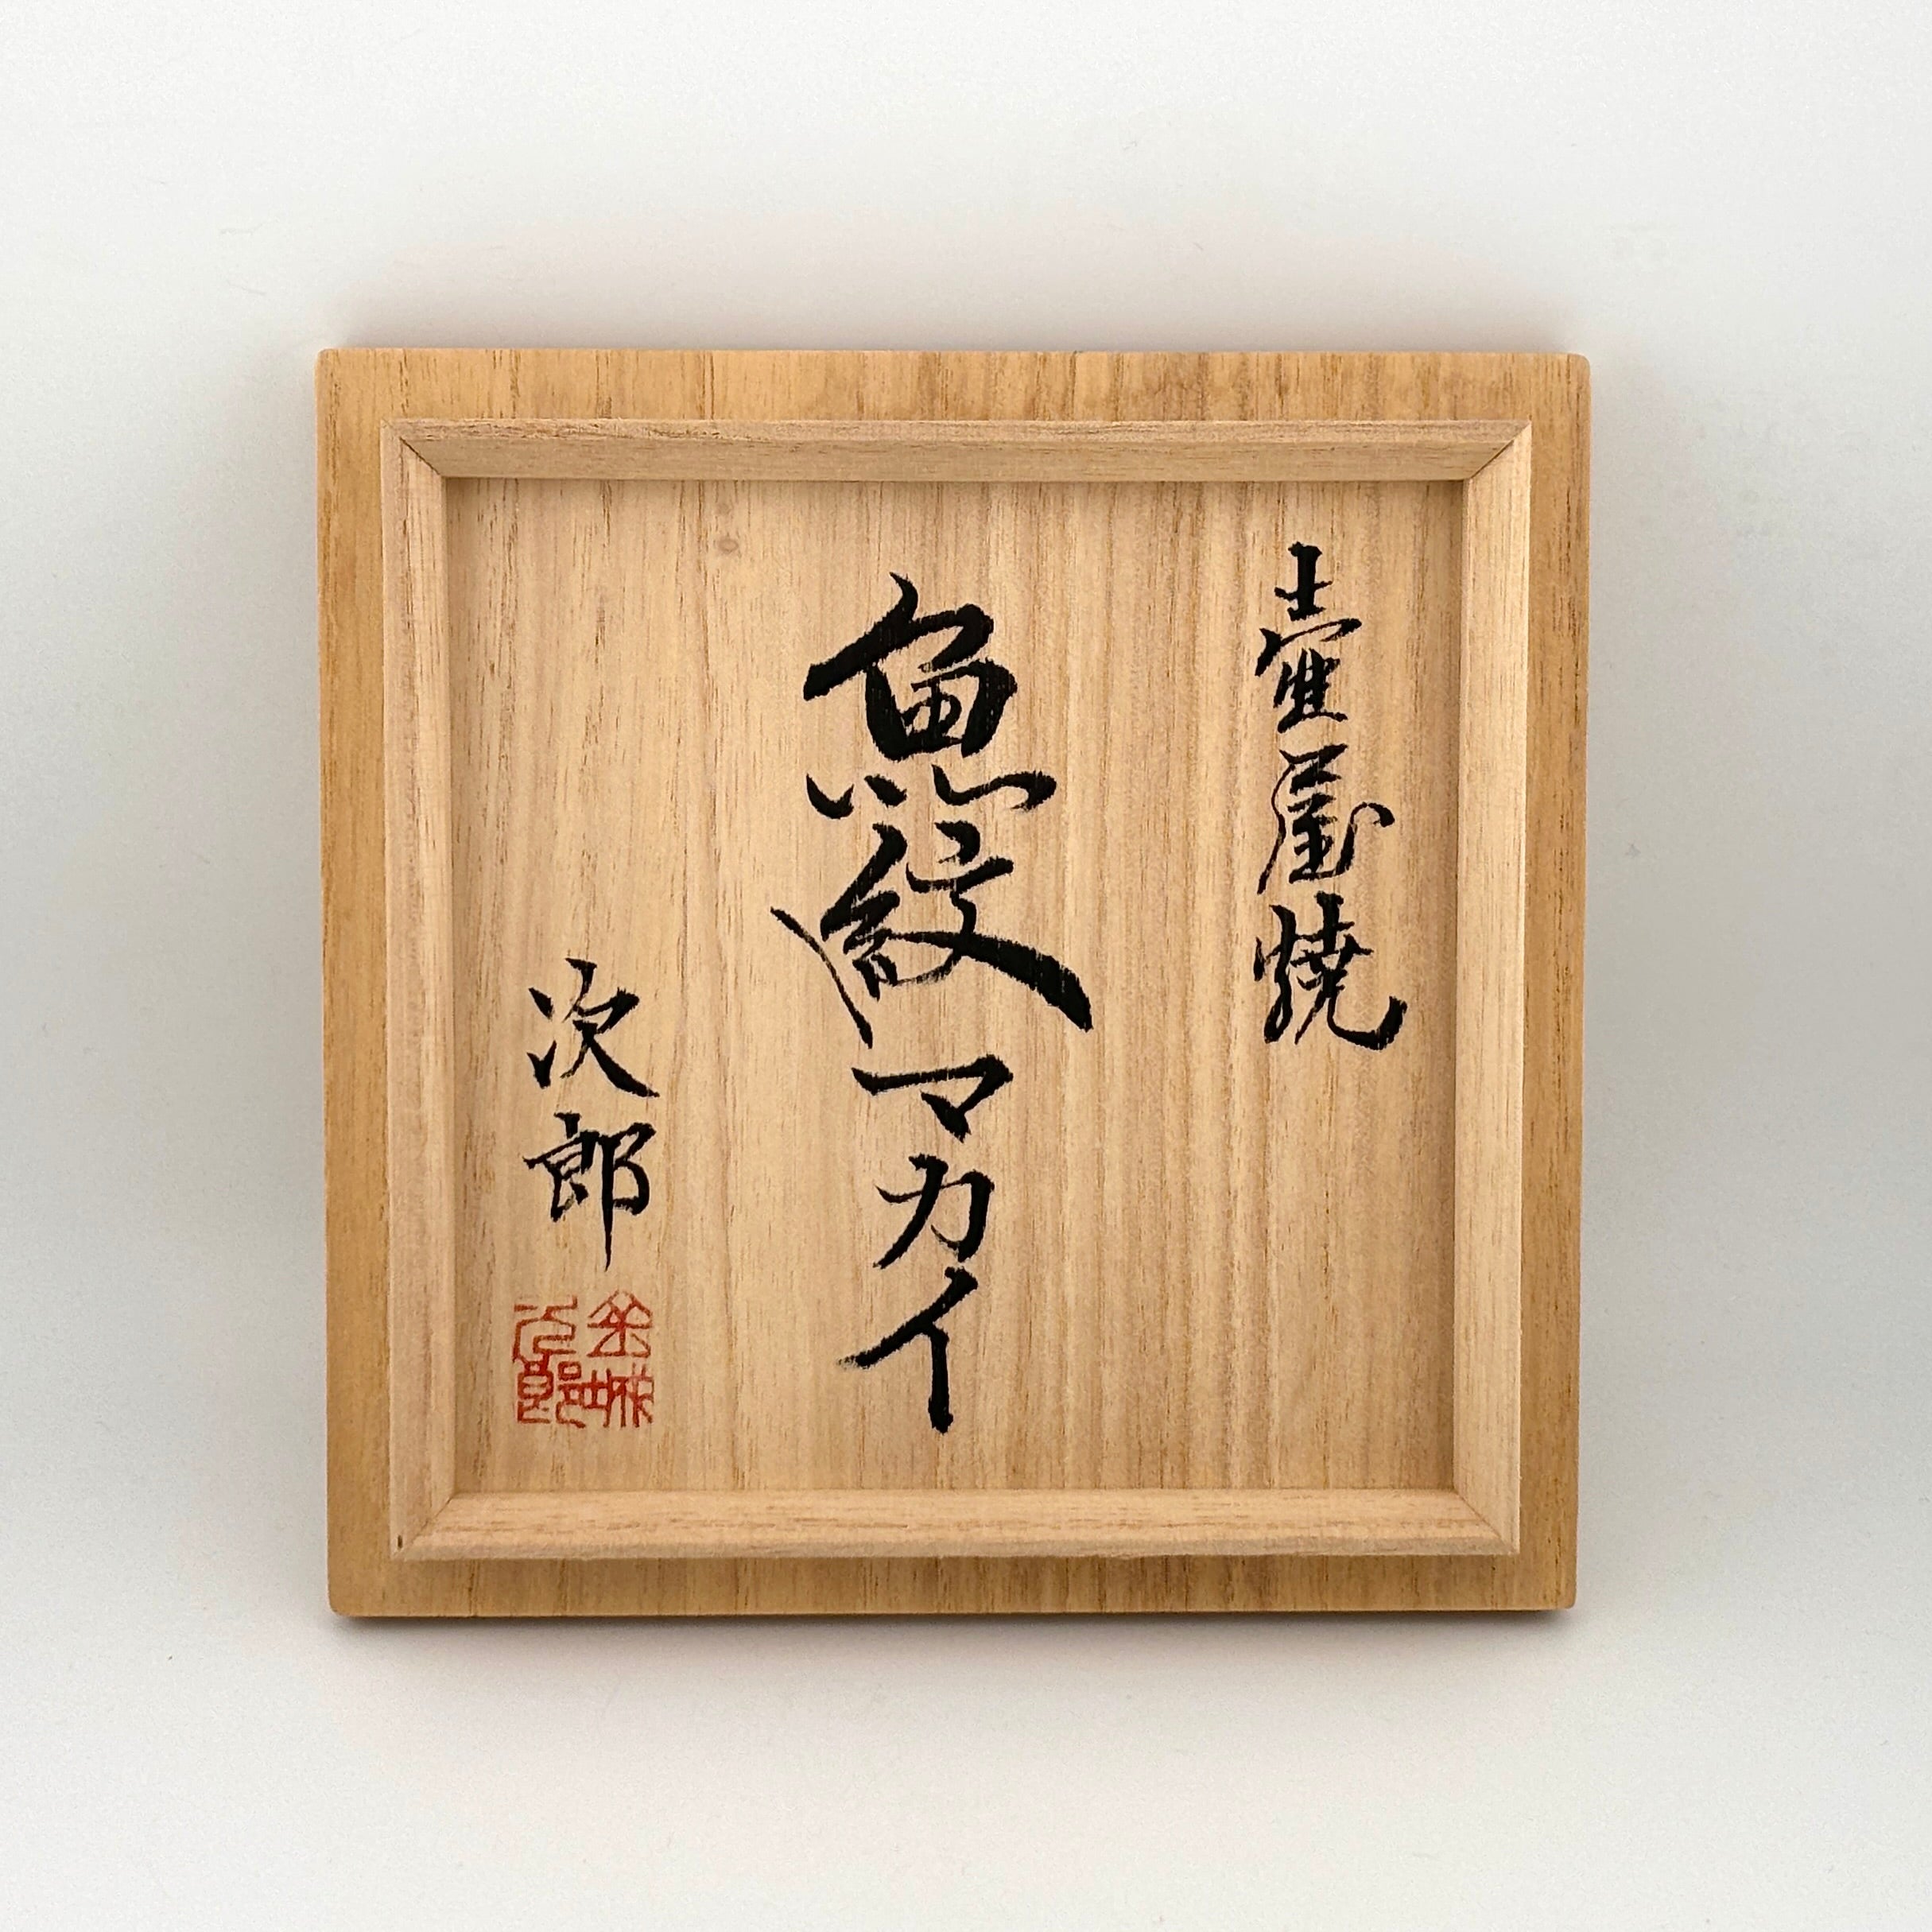 壷屋焼
魚紋マカイ
次郎
金城
次郎